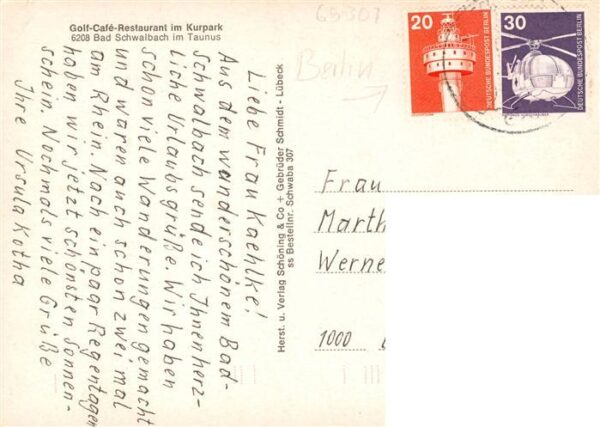 Golf-Café-Restaurant im Kurpark
6208 Bad Schwalbach im Taunus
Liebe Frau Kaehlke!
Aus dem wunderschönem Bad-
Schwalbach sende ich Ihnen herz-
liche Urlaubsgrüße. Wir haben
schon viele Wanderungen gemacht
und waren auch schon zweimal
am Rhein. Nach ein paar Regentagen
haben wir jetzt schönsten Sonnen-
schein. Nochmals viele Grüße
Ihre Ursula Kotha
Herst. u. Verlag Schöning & Co + Gebrüder Schmidt - Lübeck
ss Bestellnr. Schwaba 307
65307
Berlin
20
DEUTSCHE BUNDESPOST BERLIN
30
DEUTSCHE BUNDESPOST BERLIN
Frau
Marth
Werne
1000